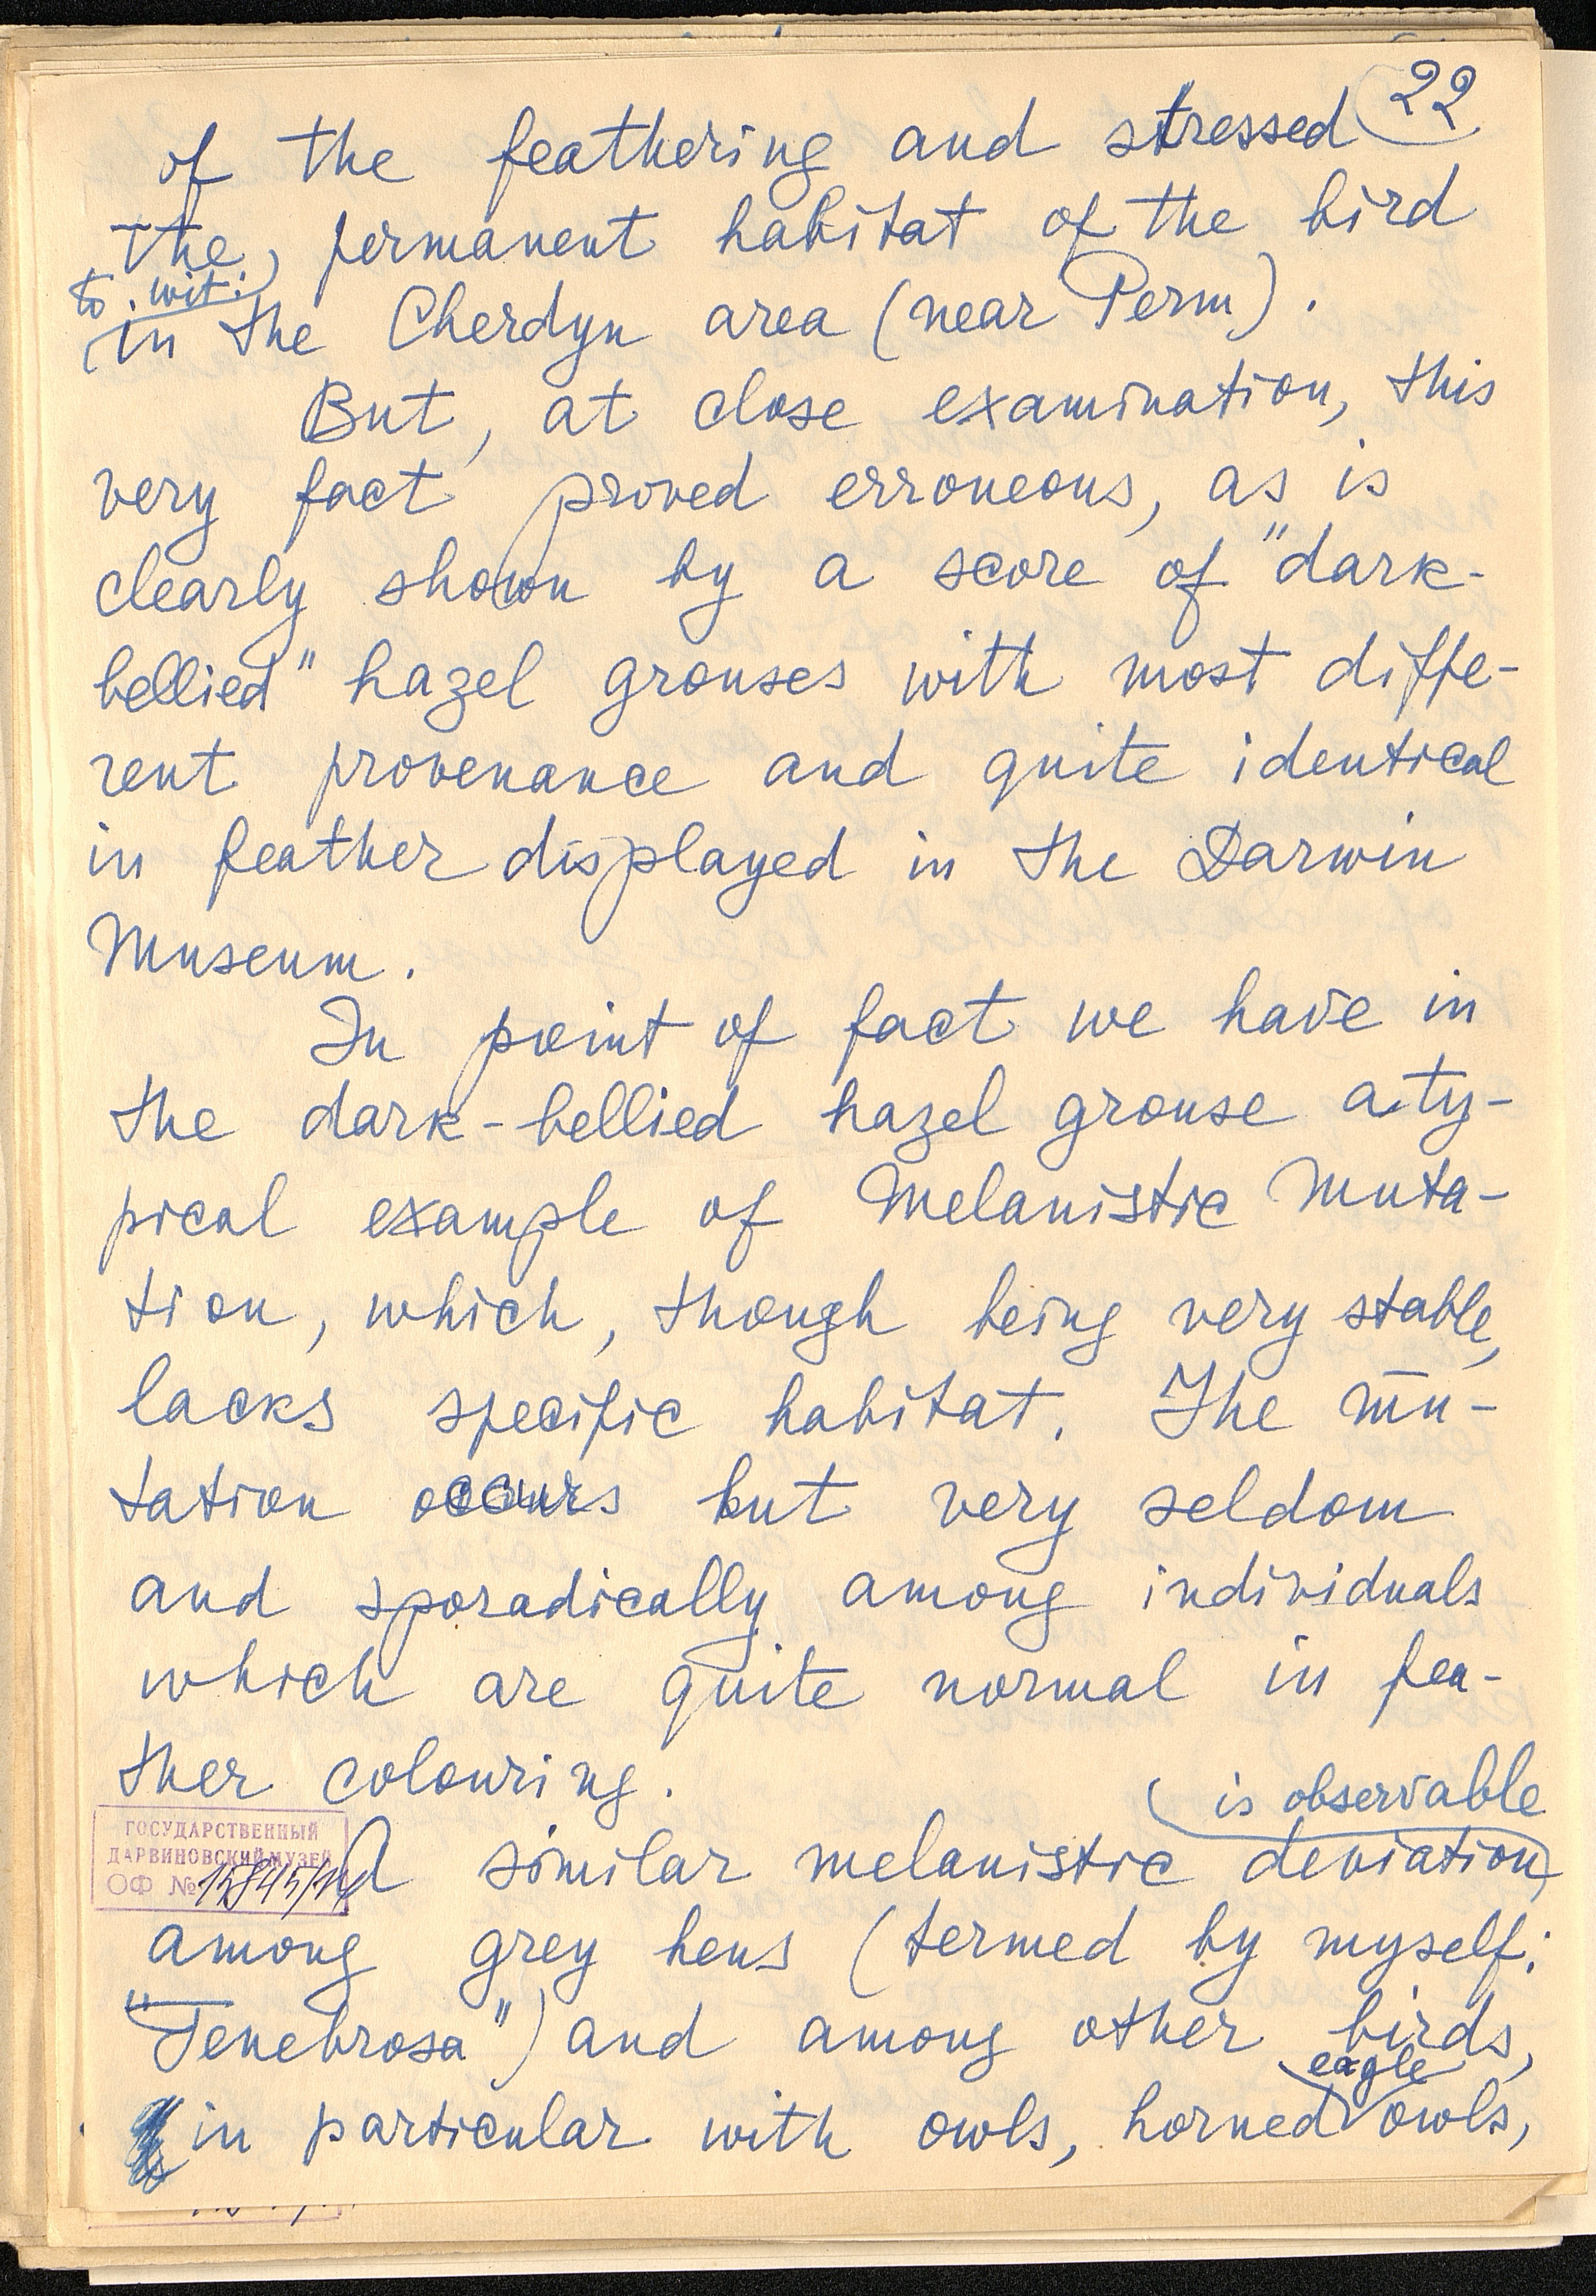 22
of the feathering and stressed
the, permanent habitat of the bird
to wit:
in the Cherdyn area (near Perm).
But, at close examination, this
very fact proved erroneous, as is
clearly shown by a score of "dark-
bellied" hazel grouses with most diffe-
rent provenance and quite identical
in feather displayed in the Darwin
Museum.
In point of fact we have in
the dark-bellied hazel grouse a ty-
pical example of Melanistic Muta-
tion, which, though being very stable,
lacks specific habitat. The mu-
tation occurs but very seldom
and sporadically among individuals
which are quite normal in fea-
ther colouring.
is observable
A similar melanistic deviation
among grey hens (termed by myself:
"Tenebrosa") and among other birds,
eagle
in particular with owls, horned owls,
ГОСУДАРСТВЕННЫЙ
ДАРВИНОВСКИЙ МУЗЕЙ
ОФ №